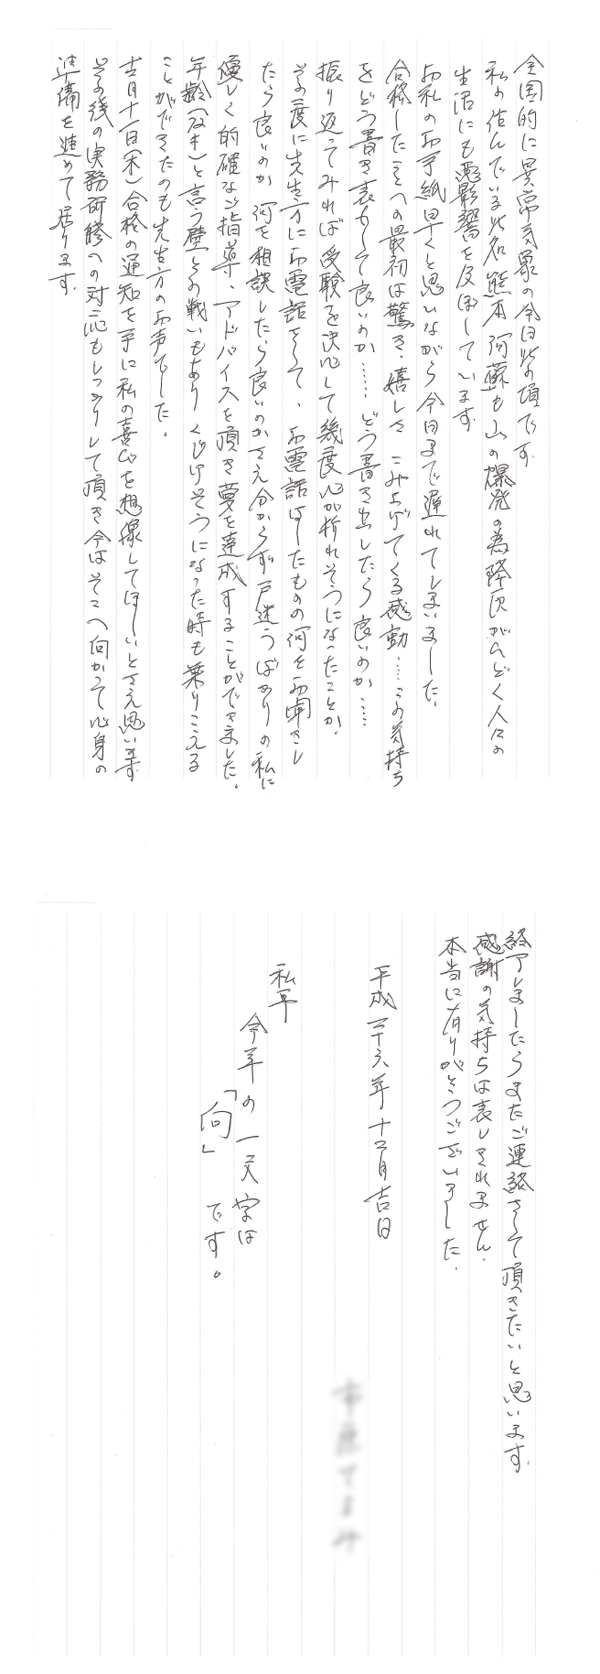 全国的に異常気象の今日此の頃です。
私の住んでいる此処熊本阿蘇も山の爆発の為降灰がひどく人々の
生活にも悪影響を及ぼしています。
お礼のお手紙早くと思いながら今日まで遅れてしまいました。
合格したことへの最初は驚き、嬉しさこみ上げてくる感動……この気持ち
をどう書き表もして良いのか……どう書き出したら良いのか……
振り返ってみれば受験を決心して幾度心が折れそうになったことか、
その度に先生方にお電話をして、お電話はしたものの何をお聞きし
たら良いのか何を相談したら良いのかさえ分からず戸迷うばかりの私に
優しく的確なご指導、アドバイスを頂き夢を達成することができました。
年齢(なき)と言う壁との戦いもありくじけそうになった時も乗りこえる
ことができたのも先生方のお声でした。
十二月十一日(木)合格の通知を手に私の喜びを想像してほしいとさえ思います
その後の実務研修への対応もしっかりして頂き今はそこへ向かって心身の
準備を進めて居ります。
終了しましたらまたご連絡さして頂きたいと思います。
感謝の気持ちは表しきれません。
本当に有りがとうございました。
平成二十六年十二月吉日
私
今年の一文字は
「向」です。